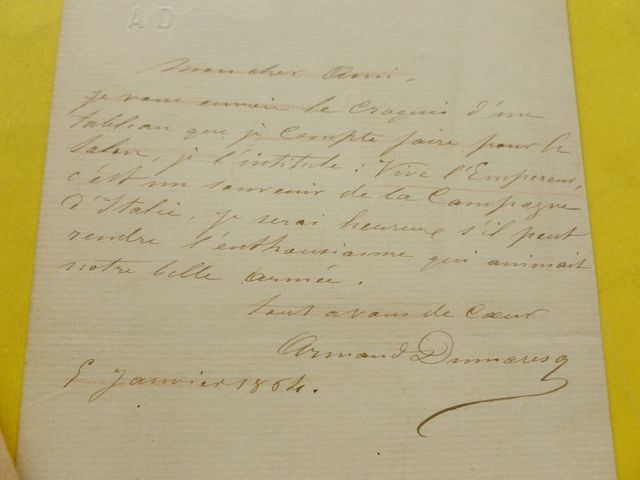 AD
Mon cher Ami,
je vous envoie le croquis d'un
tableau que je compte faire pour le
Salon, je l'intitule : Vive l'Empereur,
c'est un souvenir de la Campagne
d'Italie, je serai heureux s'il peut
rendre l'enthousiasme qui animait
notre belle armée.
tout a vous de Cœur
Armand Dumaresq
5 Janvier 1864.